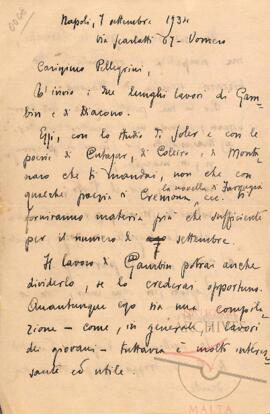 Napoli, 7 settembre 1934
via Scarlatti 67 - Vomero
Carissimo Pellegrini,
T'invio i due lunghi lavori di Gam-
bin e di Diacono.
Essi, con lo studio di Soler e con le
poesie di Cutajar, di Coleiro, e di Monta-
naro che ti mandai, non che con
la novella di Farrugia
qualche poesia di Cremona, ecc. ti
forniranno materia più che sufficiente
per il numero di settembre.
Il lavoro di Gambin potrai anche
dividerlo, se lo crederai opportuno.
Quantunque ego sia una compila-
zione - come, in generale i lavori
dei giovani - tuttavia è molto interes-
sante ed utile.
MALTA